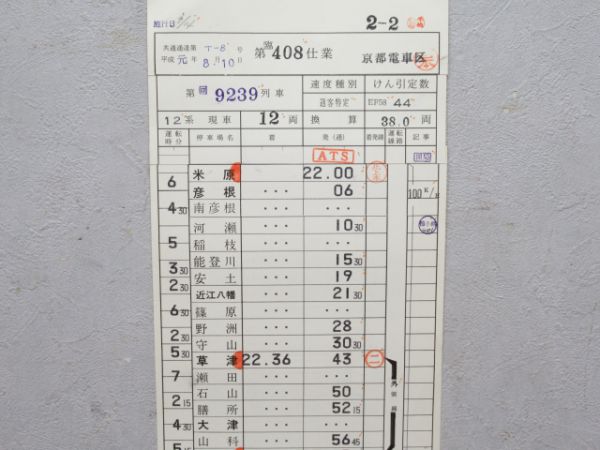 2-2
共通通達第 T-8 号
平成元年 8月10日
臨
第408仕業
京都電車区
第 回 9239 列車
速度種別
けん引定数
通客特定
EF58 44
12系 現車 12 両
換算 38.0 両
運転時分
停車場名
着
発(通)
着発線
運転線路
記事
ATS
6
米原 22.00
彦根 ・・・ 06
100K/h
4 30
南彦根 ・・・ ・・・
河瀬 ・・・ 10 30
5
稲枝 ・・・ ・・・
能登川 ・・・ 15 30
3 30
安土 ・・・ 19
2 30
近江八幡 ・・・ 21 30
6 30
篠原 ・・・ ・・・
野洲 ・・・ 28
2 30
守山 ・・・ 30 30
5 30
草津 22.36 43 二
7
瀬田 ・・・ ・・・
外側線
石山 ・・・ 50
2 15
膳所 ・・・ 52 15
4 30
大津 ・・・ ・・・
山科 ・・・ 56 45
5